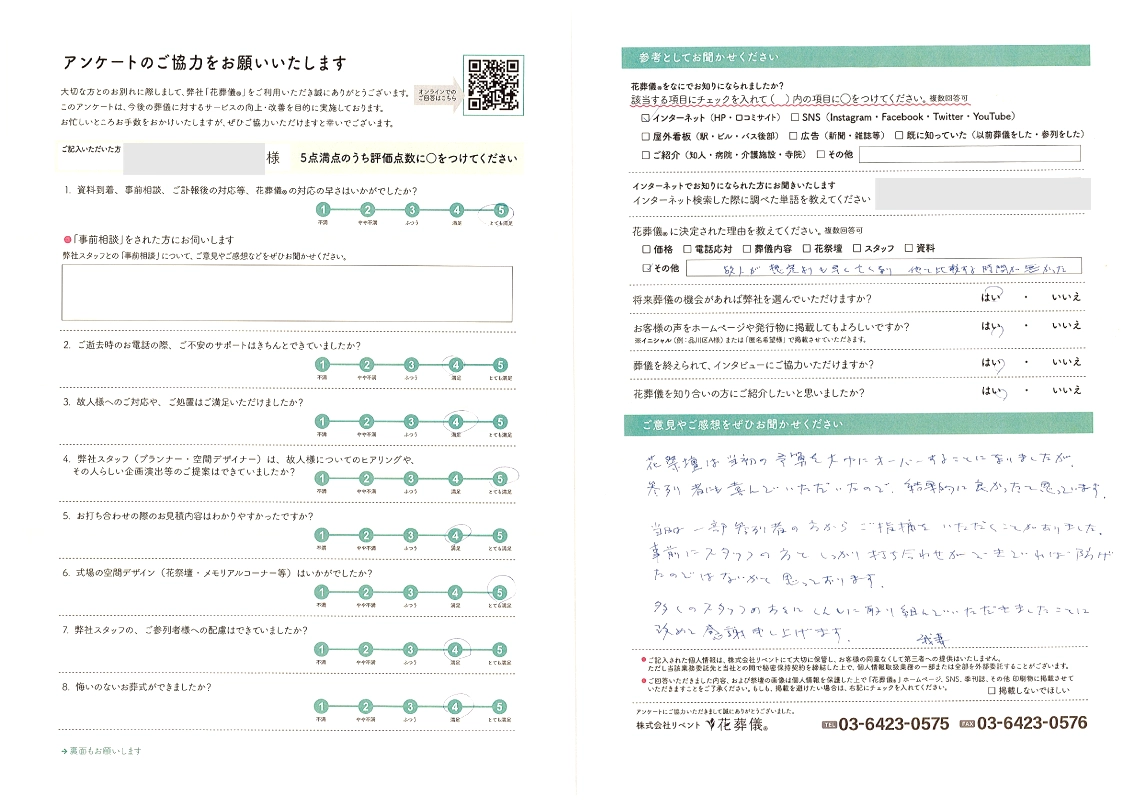 アンケートのご協力をお願いいたします
大切な方とのお別れに際しまして、弊社「花葬儀®」をご利用いただき誠にありがとうございます。
このアンケートは、今後の葬儀に対するサービスの向上・改善を目的に実施しております。
お忙しいところお手数をおかけいたしますが、ぜひご協力いただけますと幸いでございます。
オンラインでの
ご回答はこちら
ご記入いただいた方 様 5点満点のうち評価点数に○をつけてください
1. 資料到着、事前相談、ご訃報後の対応等、花葬儀®の対応の早さはいかがでしたか?
1 2 3 4 5
不満 やや不満 ふつう 満足 とても満足
「事前相談」をされた方にお伺いします
弊社スタッフとの「事前相談」について、ご意見やご感想などをぜひお聞かせください。
2. ご逝去時のお電話の際、ご不安のサポートはきちんとできていましたか?
1 2 3 4 5
不満 やや不満 ふつう 満足 とても満足
3. 故人様へのご対応や、ご処置はご満足いただけましたか?
1 2 3 4 5
不満 やや不満 ふつう 満足 とても満足
4. 弊社スタッフ(プランナー・空間デザイナー)は、故人様についてのヒアリングや、
その人らしい企画演出等のご提案はできていましたか?
1 2 3 4 5
不満 やや不満 ふつう 満足 とても満足
5. お打ち合わせの際のお見積内容はわかりやすかったですか?
1 2 3 4 5
不満 やや不満 ふつう 満足 とても満足
6. 式場の空間デザイン(花祭壇・メモリアルコーナー等)はいかがでしたか?
1 2 3 4 5
不満 やや不満 ふつう 満足 とても満足
7. 弊社スタッフの、ご参列者様への配慮はできていましたか?
1 2 3 4 5
不満 やや不満 ふつう 満足 とても満足
8. 悔いのないお葬式ができましたか?
1 2 3 4 5
不満 やや不満 ふつう 満足 とても満足
→ 裏面もお願いします
参考としてお聞かせください
花葬儀®をなにでお知りになられましたか?
該当する項目にチェックを入れて( )内の項目に○をつけてください。複数回答可
☑ インターネット(HP・口コミサイト) □ SNS(Instagram・Facebook・Twitter・YouTube)
□ 屋外看板(駅・ビル・バス後部) □ 広告(新聞・雑誌等) □ 既に知っていた(以前葬儀をした・参列をした)
□ ご紹介(知人・病院・介護施設・寺院) □ その他
インターネットでお知りになられた方にお聞きいたします
インターネット検索した際に調べた単語を教えてください
花葬儀®に決定された理由を教えてください。複数回答可
□ 価格 □ 電話応対 □ 葬儀内容 □ 花祭壇 □ スタッフ □ 資料
☑ その他 故人が予定より早く亡くなり 他と比較する時間が無かった
将来葬儀の機会があれば弊社を選んでいただけますか? はい ・ いいえ
お客様の声をホームページや発行物に掲載してもよろしいですか? はい ・ いいえ
※イニシャル(例:品川区A様)または「匿名希望様」で掲載させていただきます。
葬儀を終えられて、インタビューにご協力いただけますか? はい ・ いいえ
花葬儀を知り合いの方にご紹介したいと思いましたか? はい ・ いいえ
ご意見やご感想をぜひお聞かせください
花祭壇は当初の予算を大巾にオーバーすることになりましたが、
参列者にも喜んでいただいたので、結果的に良かったと思っています。
当日は一部参列者の方からご指摘をいただくことがありました。
事前にスタッフの方としっかり打ち合わせができていれば防げ
たのではないかと思っております。
多くのスタッフの方々に 取り組んでいただきましたことに
改めて感謝申し上げます。
ご記入された個人情報は、株式会社リベントにて大切に保管し、お客様の同意なくして第三者への提供はいたしません。
ただし当該業務委託先と当社との間で秘密保持契約を締結した上で、個人情報取扱業務の一部または全部を外部委託することがございます。
ご回答いただきました内容、および祭壇の画像は個人情報を保護した上で「花葬儀」ホームページ、SNS、季刊誌、その他 印刷物に掲載させて
いただきますことをご了承ください。もしも、掲載を避けたい場合は、右記にチェックを入れてください。 □ 掲載しないでほしい
アンケートにご協力いただきまして誠にありがとうございました。
株式会社リベント 花葬儀® TEL 03-6423-0575 FAX 03-6423-0576